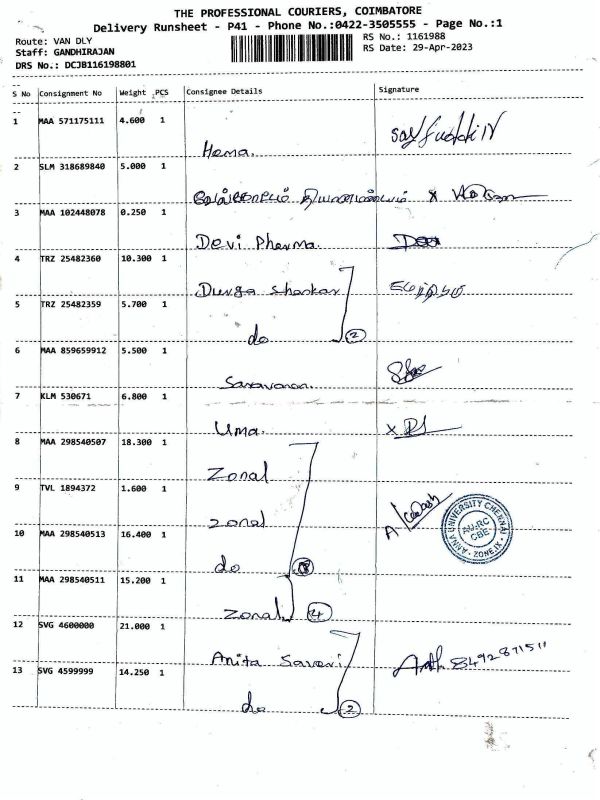 THE PROFESSIONAL COURIERS, COIMBATORE
Delivery Runsheet - P41 - Phone No.:0422-3505555 - Page No.:1
Route: VAN DLY
Staff: GANDHIRAJAN
DRS No.: DCJB116198801
RS No.: 1161988
RS Date: 29-Apr-2023
S No Consignment No Weight PCS Consignee Details Signature
1 MAA 571175111 4.600 1
Hema.
2 SLM 318689840 5.000 1
3 MAA 102448078 0.250 1
Devi Pharma.
4 TRZ 25482360 10.300 1
Durga Shankar
5 TRZ 25482359 5.700 1
do 2
6 MAA 859659912 5.500 1
Saravanan.
7 KLM 530671 6.800 1
Uma. X
8 MAA 298540507 18.300 1
Zonal
9 TVL 1894372 1.600 1
zonal
10 MAA 298540513 16.400 1
do
ANNA UNIVERSITY CHENNAI
AU-RC
CBE
ZONE.IX
11 MAA 298540511 15.200 1
Zonal 4
12 SVG 4600000 21.000 1
Anita Saveri
13 SVG 4599999 14.250 1
do 2